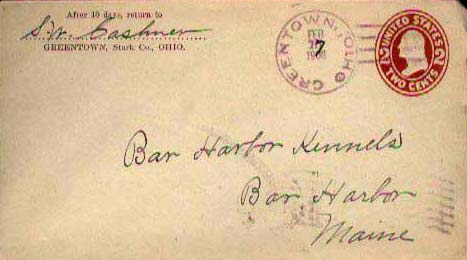 After 10 days, return to
S.W. Cashner
GREENTOWN, Stark Co., OHIO.
GREENTOWN, OHIO
FEB
7
1908
UNITED STATES
2 2
TWO CENTS
Bar Harbor Kennels
Bar Harbor
Maine